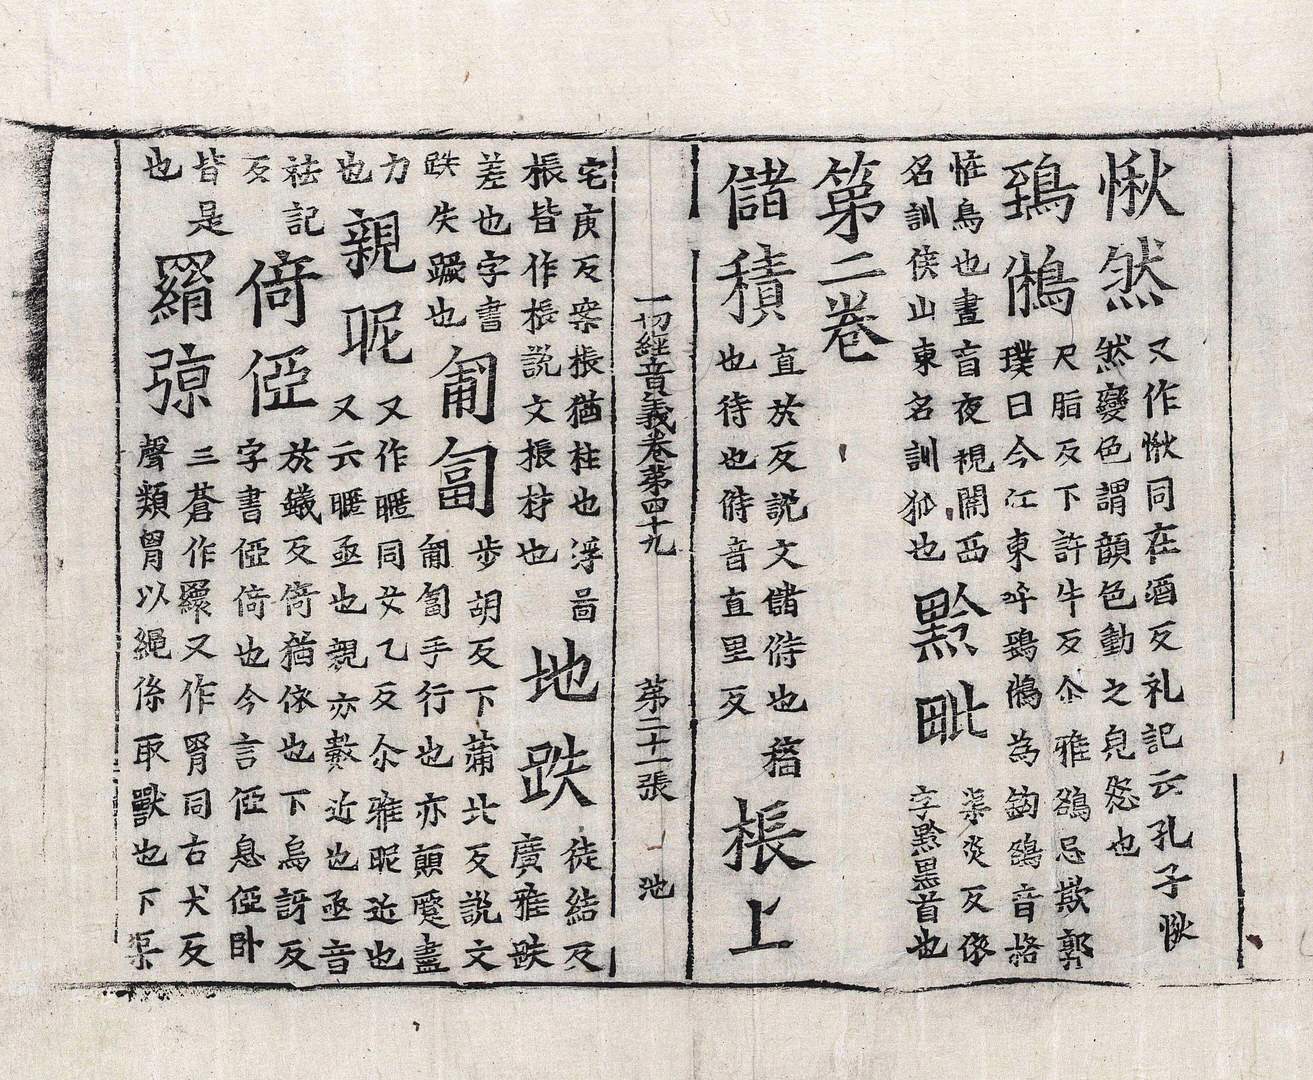 愀然
又作愀同在酒反礼記云孔子愀
然變色謂顔色動之皃也
鵄鵂
尺脂反下許牛反尒雅鵅忌欺郭
璞曰今江東呼鵄鵂為鉤鵅音格
恠鳥也晝盲夜視關西
名訓侯山東名訓狐也
黔毗
渠炎反依
字黔黒首也
第二卷
儲積
直於反説文儲偫也穡
也待也偫音直里反
棖上
一切經音義卷第四十九 第二十一張 池
宅庚反案棖猶柱也浮啚
棖皆作棖説文棖材也
地跌
徒結反
廣雅跌
差也字書
跌失蹶也
匍匐
步胡反下蒲北反説文
匍匐手行也亦顛蹷盡
力
也
親昵
又作暱同女乙反尒雅昵近也
又云暱亟也親亦數近也亟音
祛記
反
倚俹
於蟻反倚猶依也下烏訝反
字書俹倚也今言俹息俹卧
皆是
也
羂弶
三蒼作䍉又作罥同古犬反
聲類罥以繩係取獸也下渠